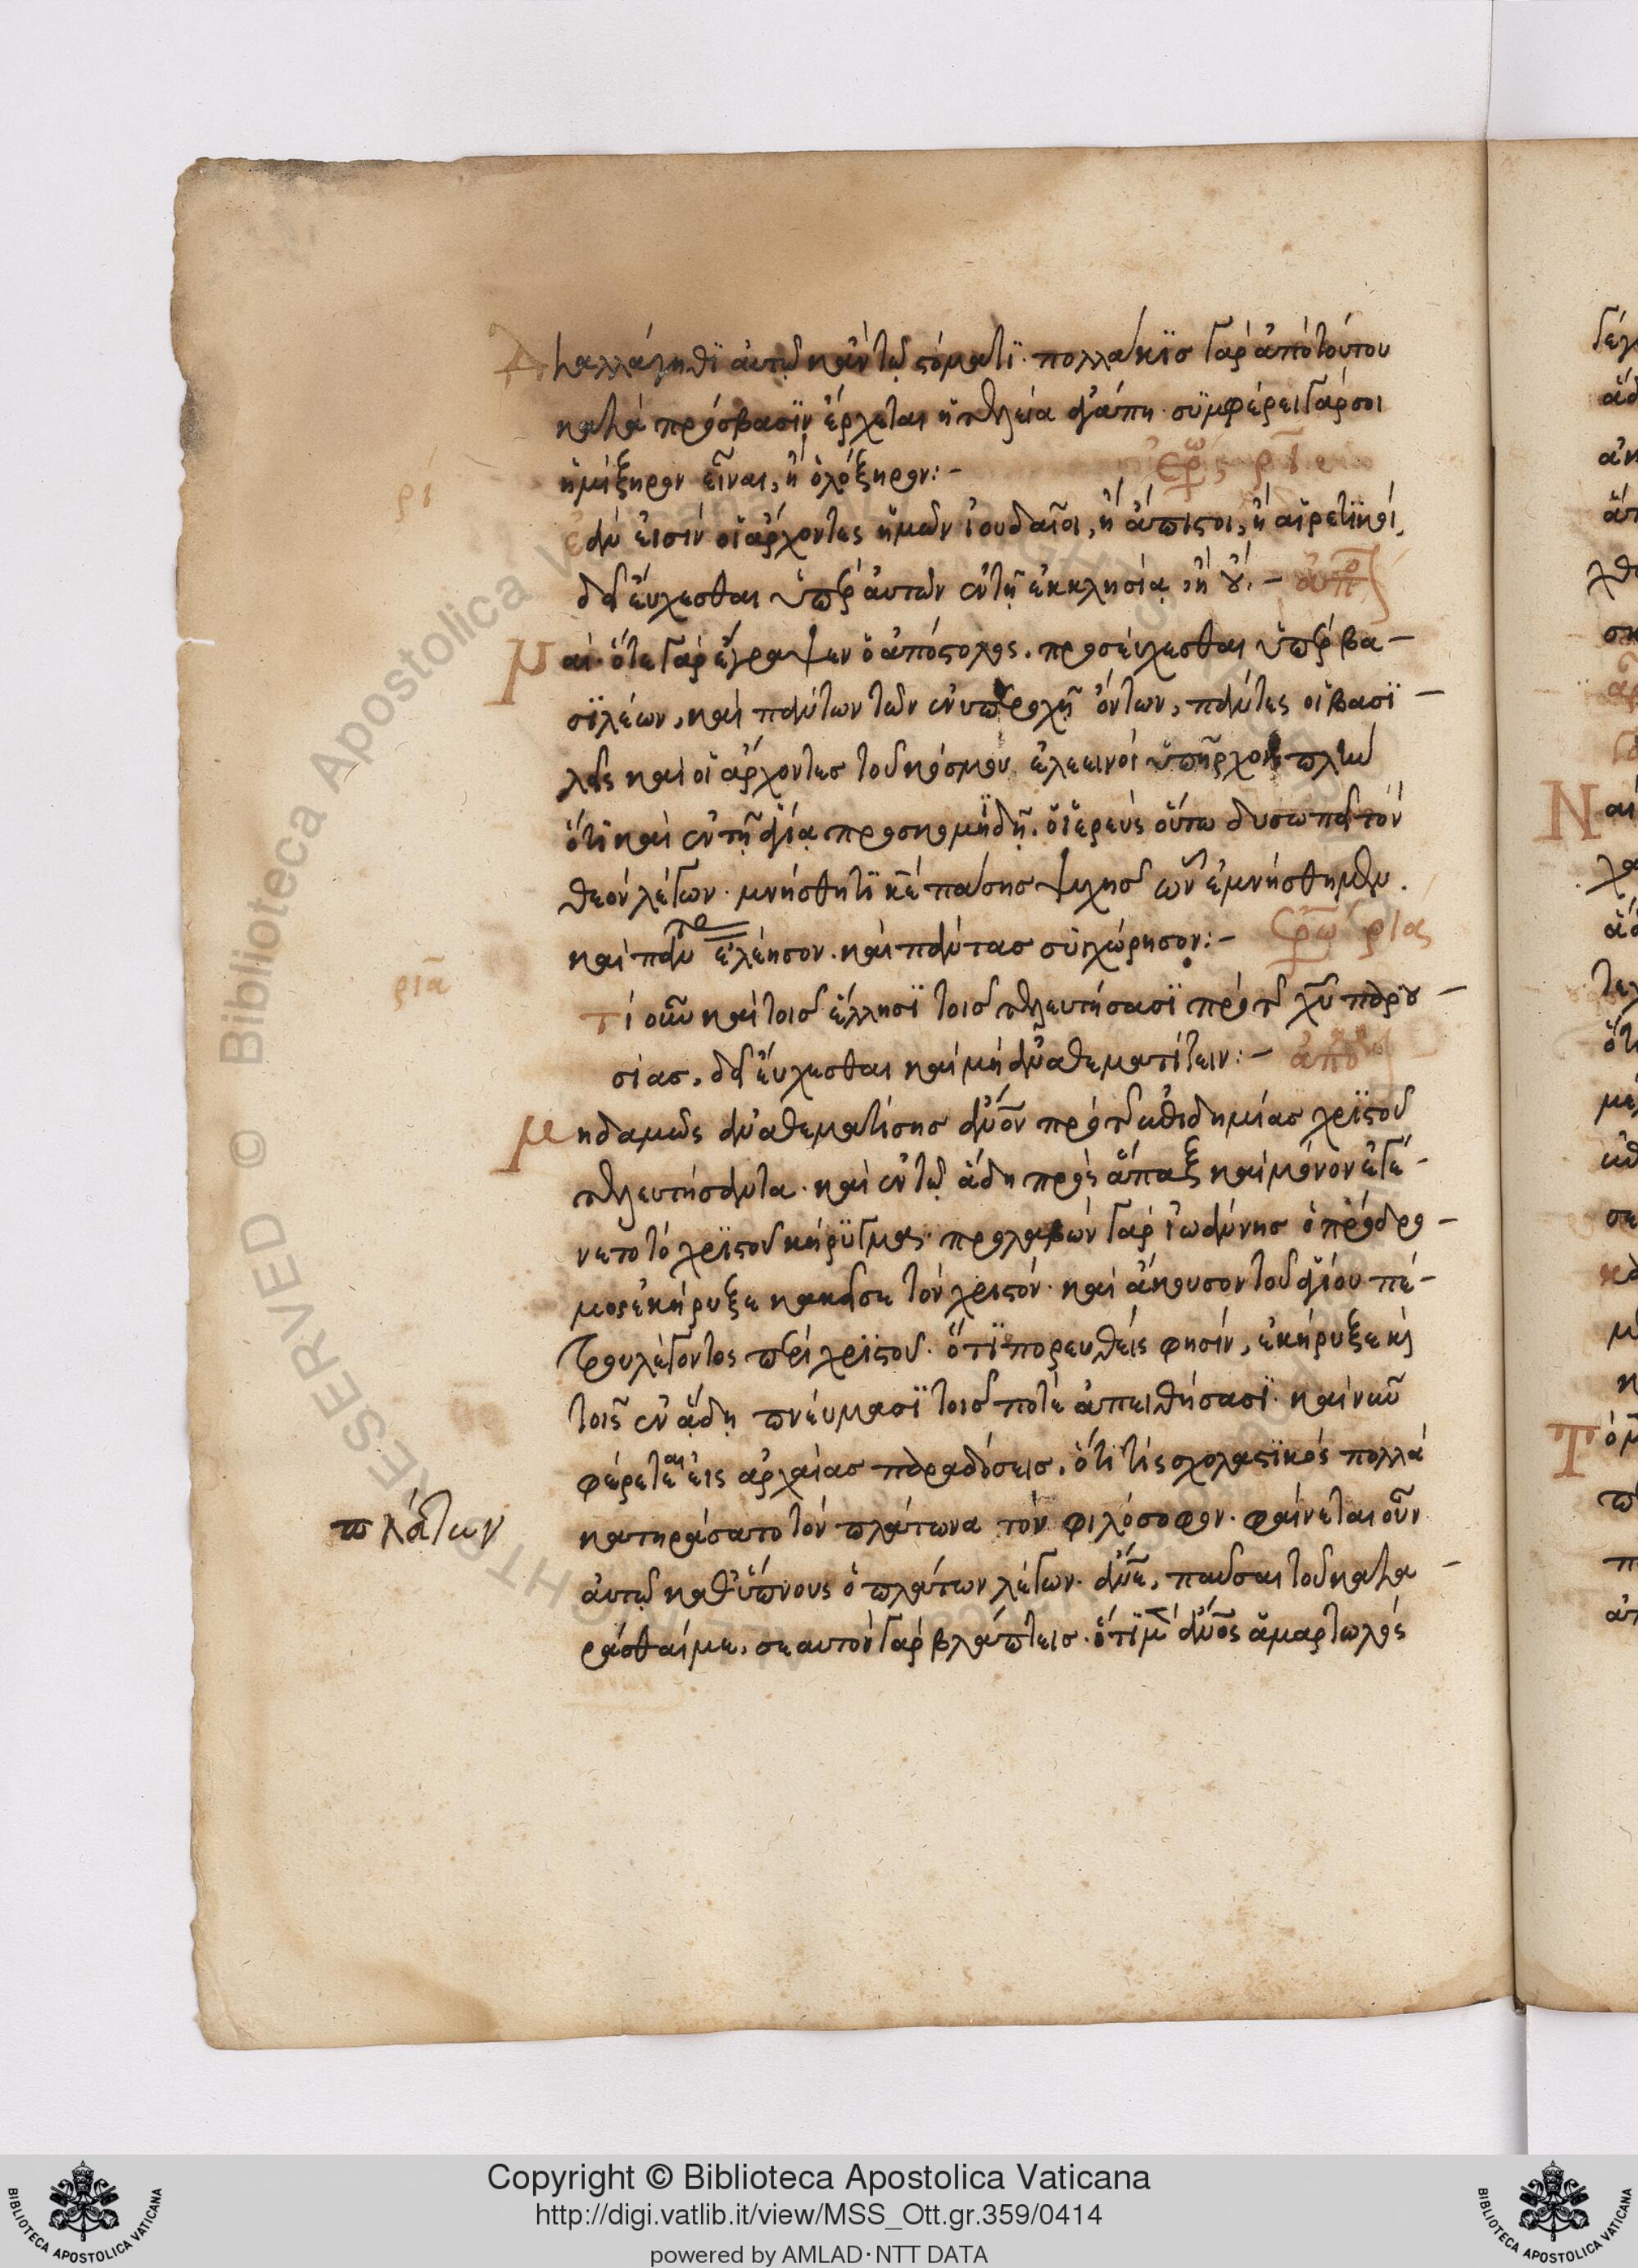 Διαλλάγηθϊ αὐτῷ κἂν τῷ στόματϊ· πολλάκϊς γὰρ ἀπὸ τούτου
κατὰ πρόσβασϊν ἔρχεται ἡ τελεία ἀγάπη· συμφέρει γάρ σοι
ἡμίξηρον εἶναι, ἢ ὁλόξηρον:–
ρι
ἐὰν εἰσὶν οἱ ἄρχοντες ἡμῶν ἰουδαῖοι, ἢ ἄπιστοι, ἢ αἱρετϊκοί,
δεῖ εὔχεσθαι ὑπὲρ αὐτῶν ἐν τῇ ἐκκλησίᾳ, ἢ οὔ.–
Ναί· ὅτε γὰρ ἔγραψεν ὁ ἀπόστολος, προσεύχεσθαι ὑπὲρ βα–
σϊλέων, καὶ πάντων τῶν ἐν υπεροχῇ ὄντων, πάντες οἱ βασϊ–
λεῖς καὶ οἱ ἄρχοντες τοῦ κόσμου ἐλεεινοὶ ὑπῆρχον πλὴν
ὅτι καὶ ἐν τῇ ἁγίᾳ προσκομϊδῇ, ὁ ἱερεὺς οὕτω δυσωπεῖ τὸν
θεὸν λέγων· μνήσθητϊ κε πάσης ψυχῆς ὧν ἐμνήσθημεν.
καὶ πάντας ἐλέησον. καὶ πάντας συγχώρησον:–
ρια
τί οὖν καὶ τοῖς ἕλλησϊ τοῖς τελευτήσασϊ πρὸ τῆς χυ παρου–
σίας, δεῖ εὔχεσθαι καὶ μὴ ἀναθεματίζειν:–
Μηδαμῶς ἀναθεματίσης ἄνον πρὸ τῆς ἐπιδημίας χρϊστοῦ
τελευτήσαντα. καὶ ἐν τῷ ἅδη πρὸς ἅπαξ καὶ μόνον ἐγέ–
νετο τὸ χρϊστοῦ κήρυγμα· προλαβὼν γὰρ ἰωάννης ὁ πρόδρο–
μος ἐκήρυξε κἀκεῖσε τὸν χριστόν· καὶ ἄκουσον τοῦ ἁγίου πέ–
τρου λέγοντος περὶ χρϊστοῦ· ὅτϊ πορευθεὶς φησίν, ἐκήρυξε κὶ
τοῖς ἐν ᾅδῃ πνεύμασϊ τοῖς ποτὲ ἀπειθήσασϊ· καὶ νῦν
φέρεται εἰς ἀρχαίας παραδόσεις, ὅτι τὶς σχολαστϊκὸς πολλὰ
πλάτων
κατηράσατο τὸν πλάτωνα τὸν φιλόσοφον· φαίνεται οὖν
αὐτῷ καθ' ὕπνους ὁ πλάτων λέγων· ἄνε, παῦσαι τοῦ κατα–
ρᾶσθαί με, σεαυτὸν γὰρ βλάπτεις· ὅτϊ μὲν ἄνος ἁμαρτωλὸς
Copyright © Biblioteca Apostolica Vaticana
http://digi.vatlib.it/view/MSS_Ott.gr.359/0414
powered by AMLAD·NTT DATA